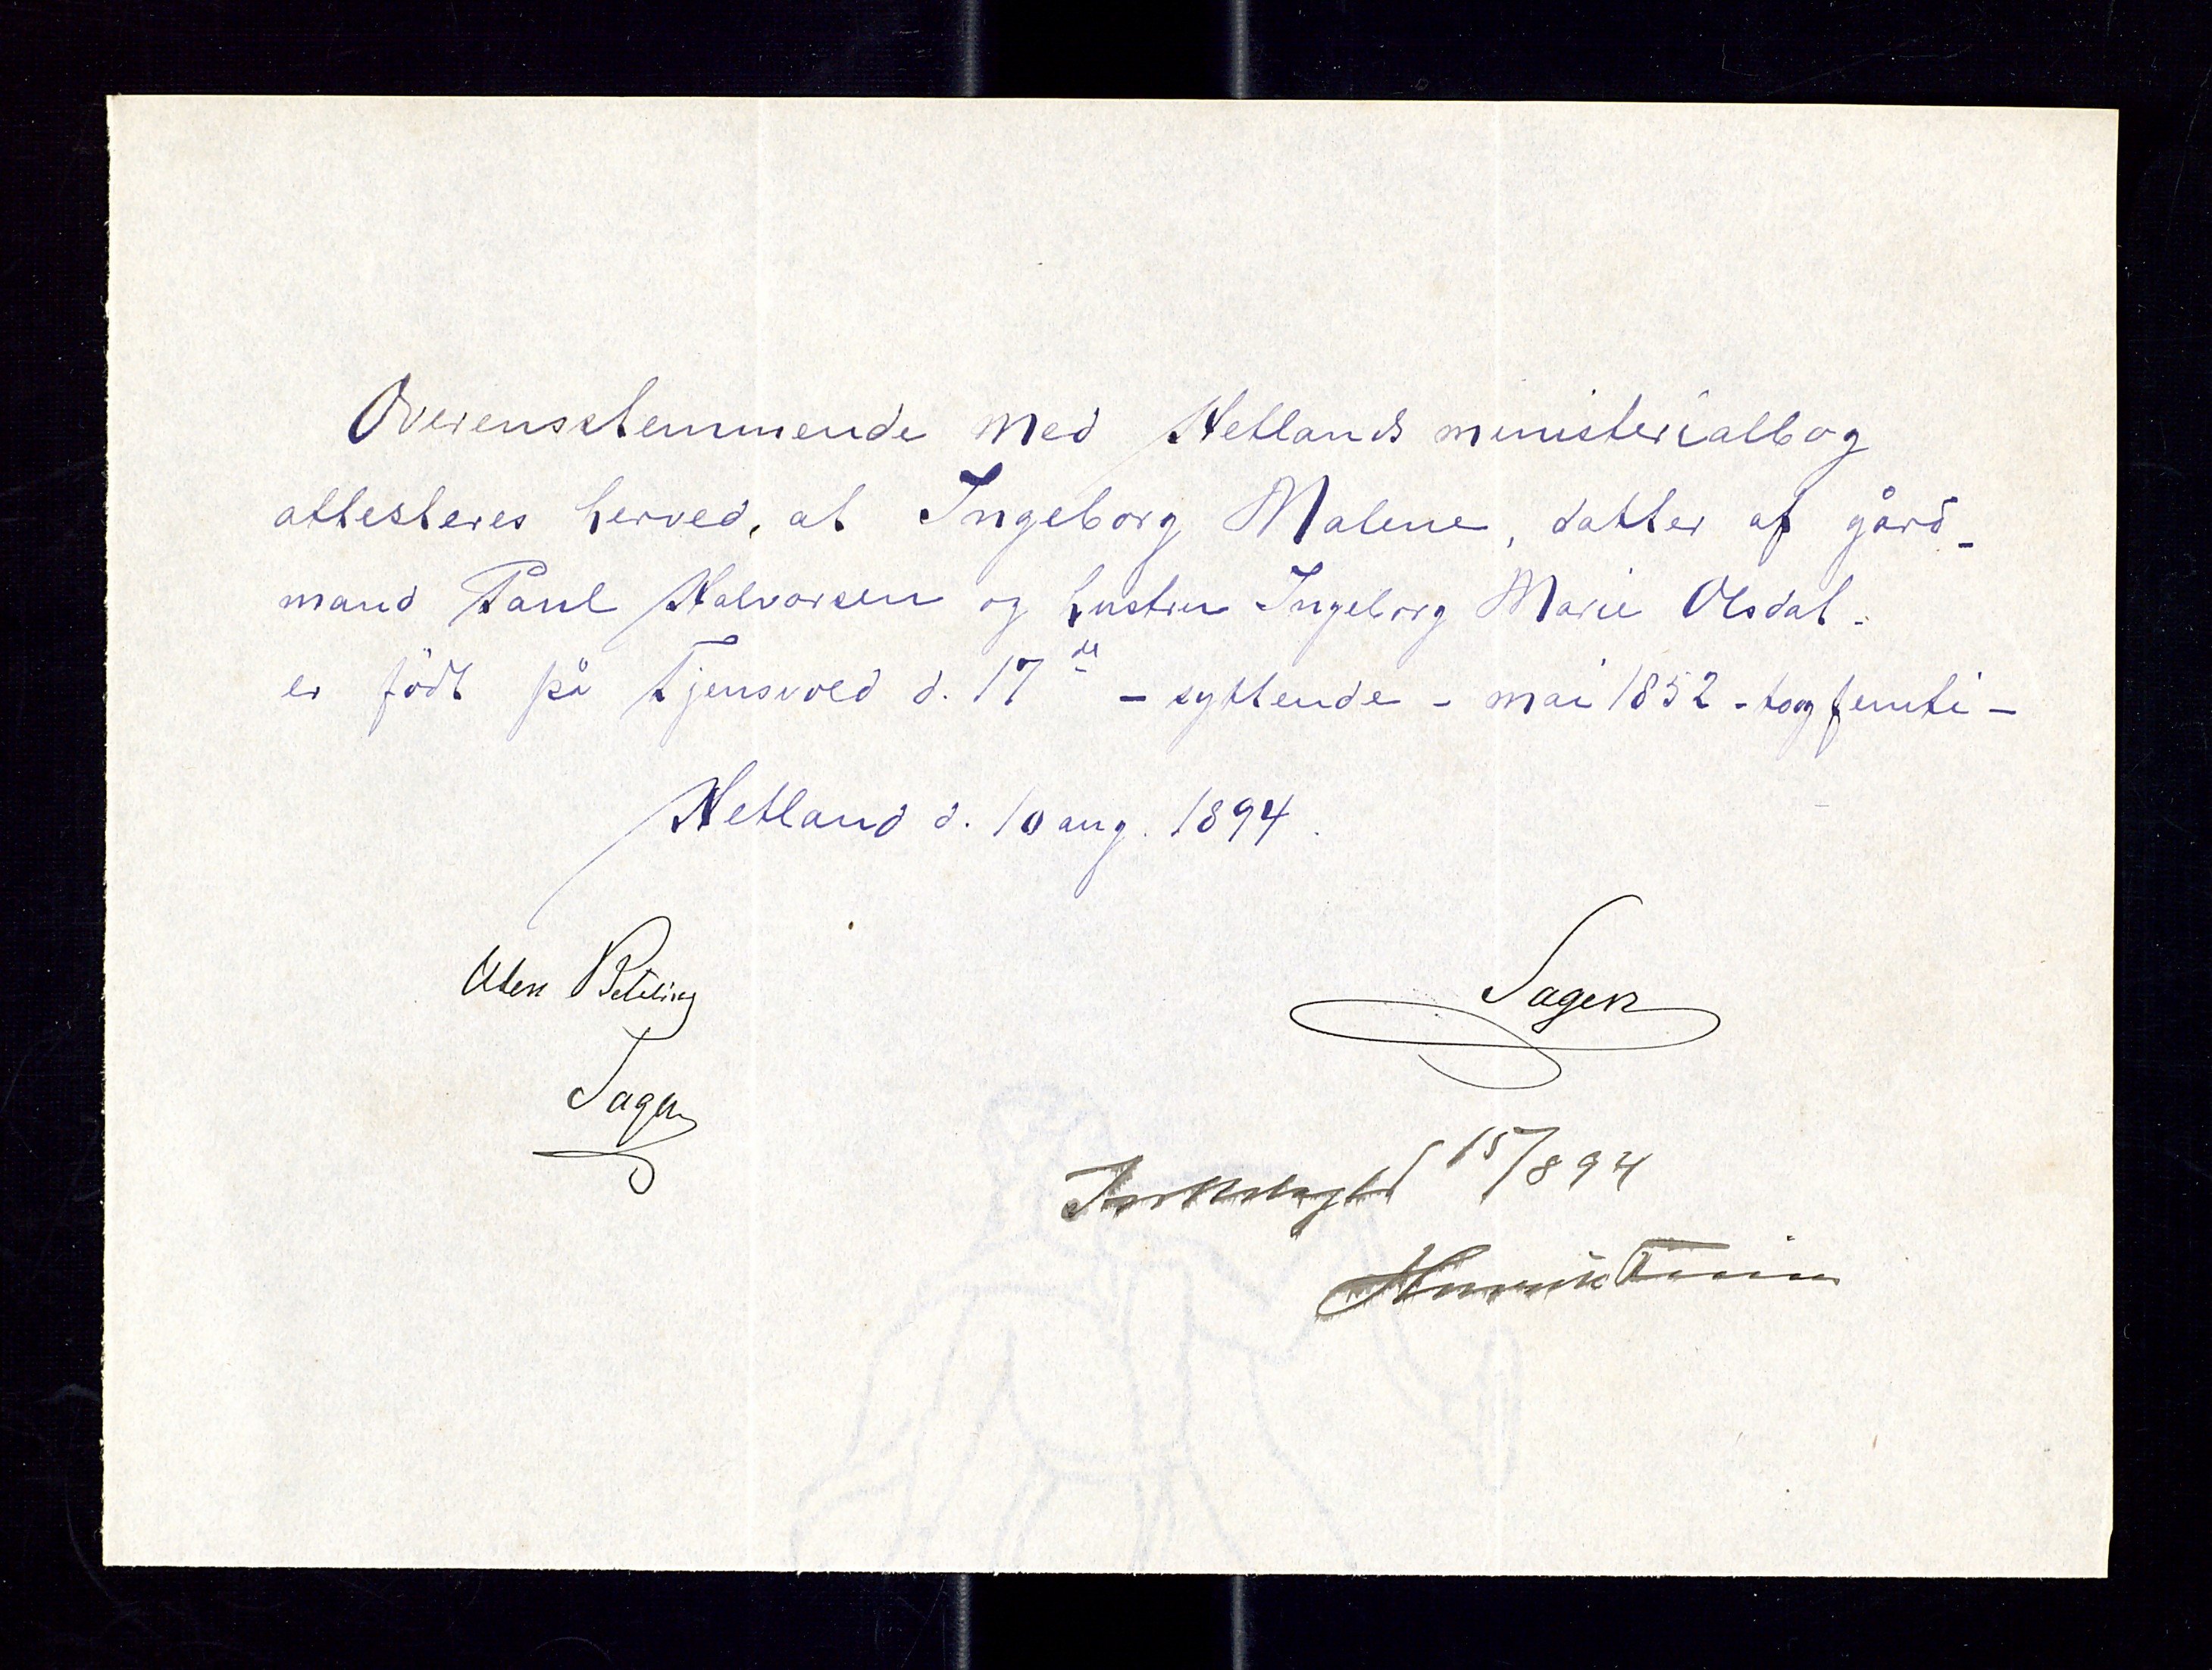 Overensstemmende med Hetlands ministerialbog
attesteres herved, at Ingeborg Malene, datter af gård-
mand Paul Halvorsen og hustru Ingeborg Marie Olsdat.
er födt på Tjensvold d. 17de - syttende - mai 1852 - toogfemti -
Hetland d. 10 aug. 1894.
Sagen
Uden Betaling
Sagen
15/8 94
Henrik